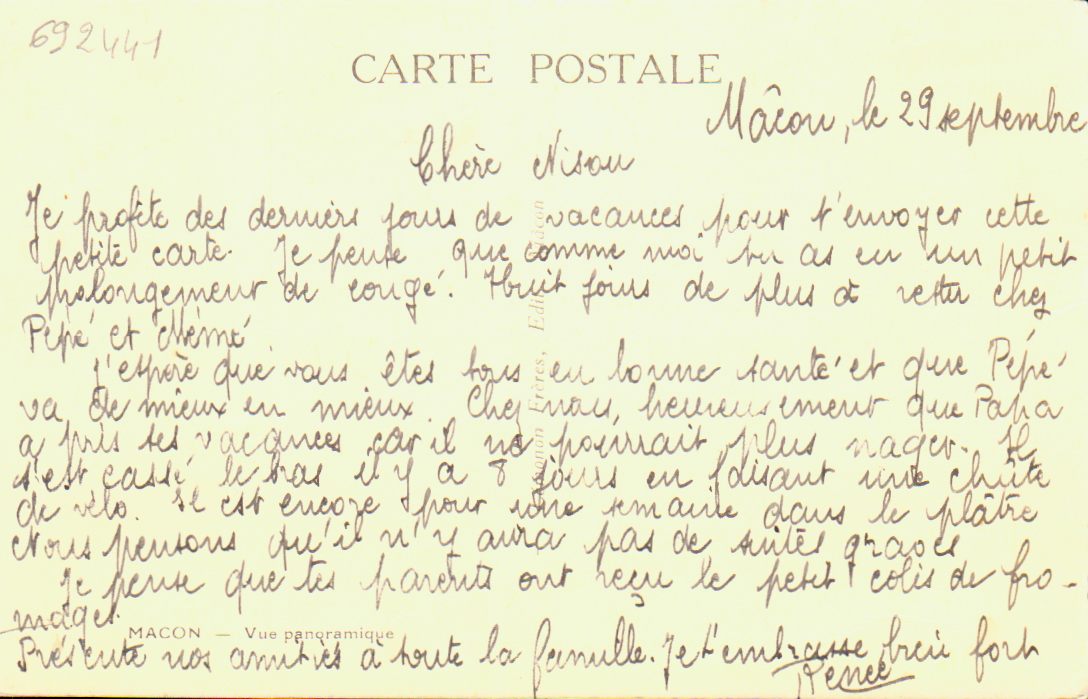 692441
CARTE POSTALE
Mâcon, le 29 septembre
Chère Nisou
Je profite des derniers jours de vacances pour t'envoyer cette
petite carte. Je pense que comme moi tu as eu un petit
prolongement de congé. Huit jours de plus à rester chez
Pépé et Mémé
J'espère que vous êtes tous en bonne santé et que Pépé
va de mieux en mieux. Chez nous, heureusement que Papa
a pris ses vacances car il ne pourrait plus nager. Il
s'est cassé le bras il y a 8 jours en faisant une chûte
de vélo. Il est encore pour une semaine dans le plâtre
Nous pensons qu'il n'y aura pas de suites graves
Je pense que tes parents ont reçu le petit colis de fro-
mages.
MACON — Vue panoramique
Présente nos amitiés à toute la famille. Je t'embrasse bien fort
Renée
Frères, Edit. Mâcon